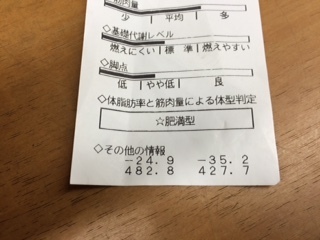 筋肉量
少 | 平均 | 多
◇基礎代謝レベル
燃えにくい | 標 準 | 燃えやすい
◇脚点
低 | やや低 | 良
◇体脂肪率と筋肉量による体型判定
☆肥満型
◇その他の情報
-24.9 -35.2
482.8 427.7